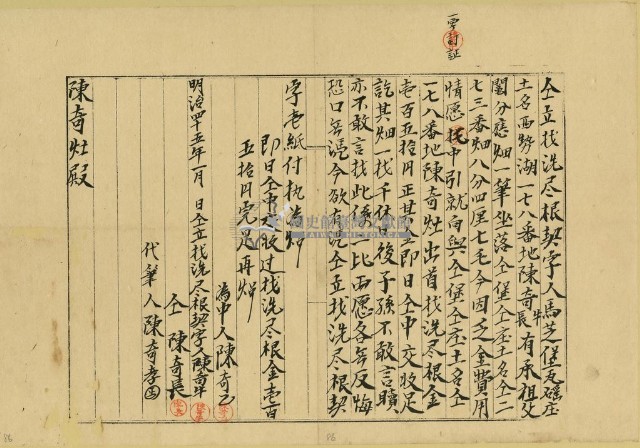 一字訂証
仝立找洗尽根契字人馬芝堡瓦磘庄
土名西勢湖一七八番地陳奇長牛有承祖父
鬮分應畑一筆坐落仝堡仝庄土名仝二
七三番畑八分四厘七毛今因乏金費用
情愿托中引就向與仝堡仝庄土名仝
一七八番地陳奇灶出首找洗尽根金
壱百五拾円正其金即日仝中交收足
訖其畑一找千休日後子孫不敢言贖
亦不敢言找此係二比両愿各無反悔
恐口無憑今欲有凴仝立找洗尽根契
字壱紙付執為炤
即日仝中交收过找洗尽根金壱百
五拾円完足再炤
為中人陳奇
明治四十五年一月 日仝立找洗尽根契字人陳奇牛
仝 陳奇長
代筆人陳奇孝
陳奇灶殿
歷史館臺灣文獻
TAIWAN HISTORICA
86
86